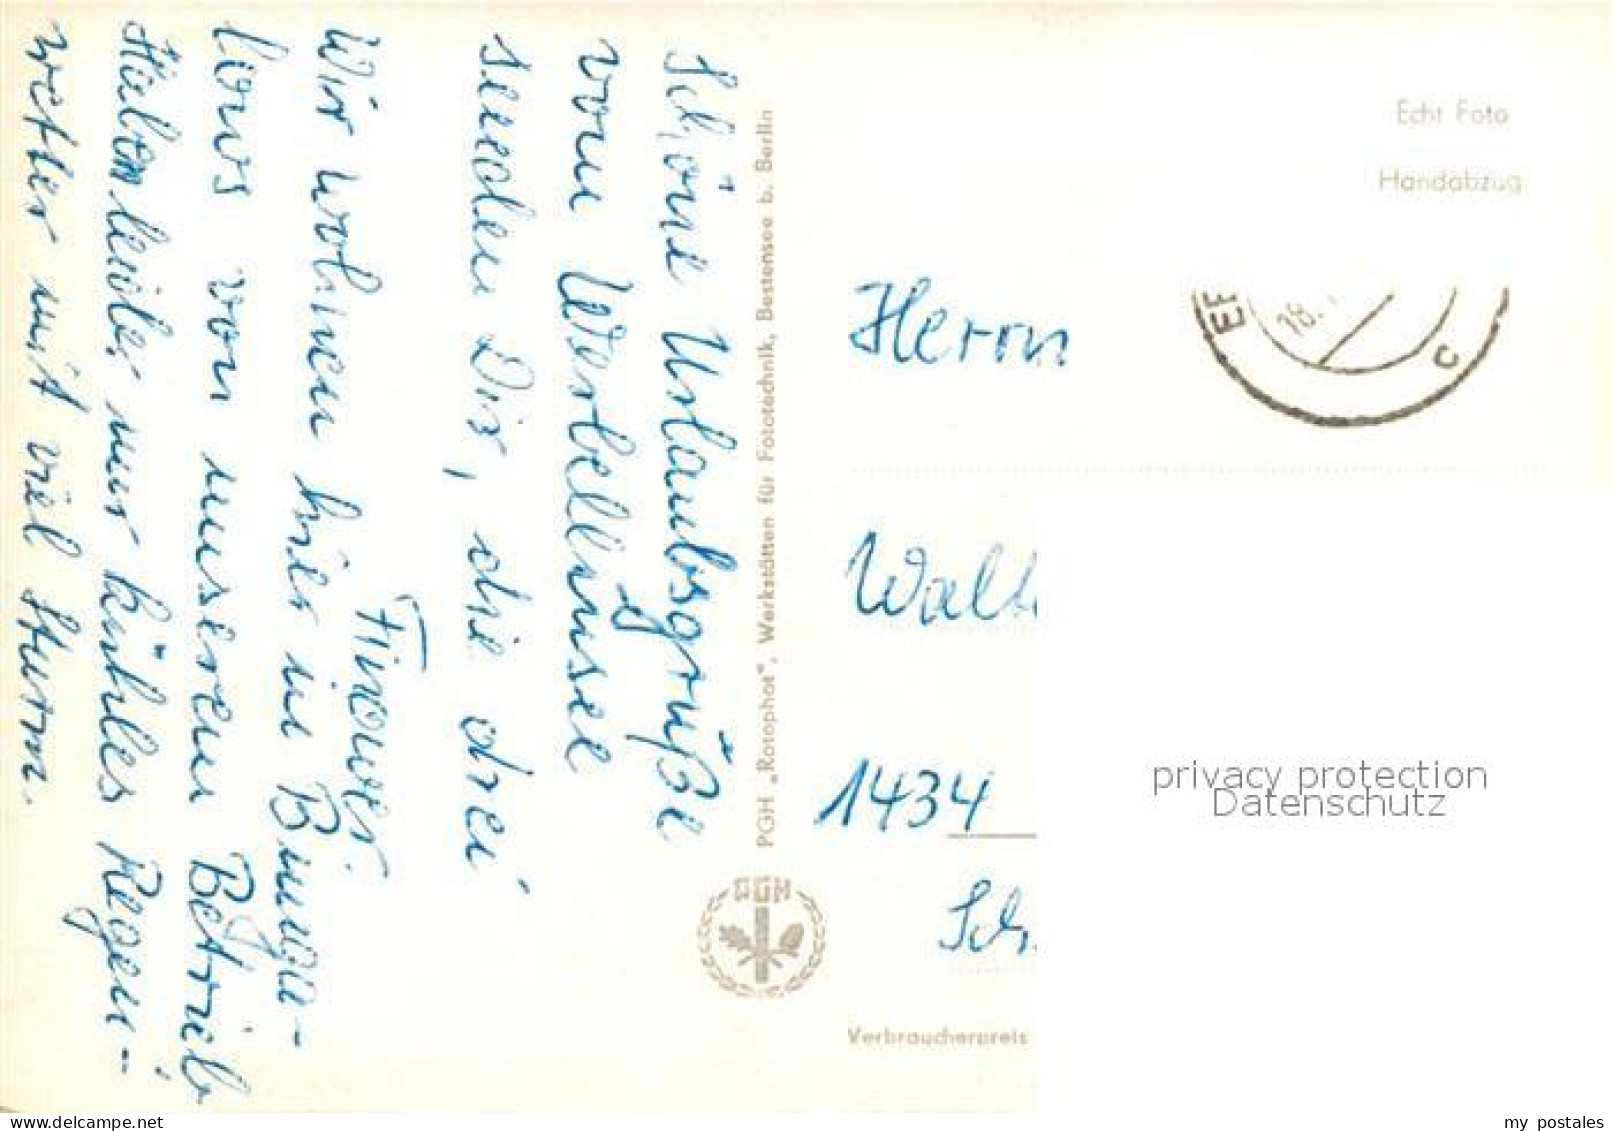 Schöne Urlaubsgrüße
vom Werbellinsee
senden Dir, die drei
Finower.
Wir wohnen hier in Bunga-
lows von unserem Betrieb
Haben leider nur kühles Regen-
wetter mit viel Sturm.
PGH „Rotophot“, Werkstätten für Fototechnik, Bestensee b. Berlin
PGH
Echt Foto
Handabzug
18.
C
Herrn
1434
Sch
Verbraucherpreis
privacy protection
Datenschutz
www.delcampe.net
my_postales